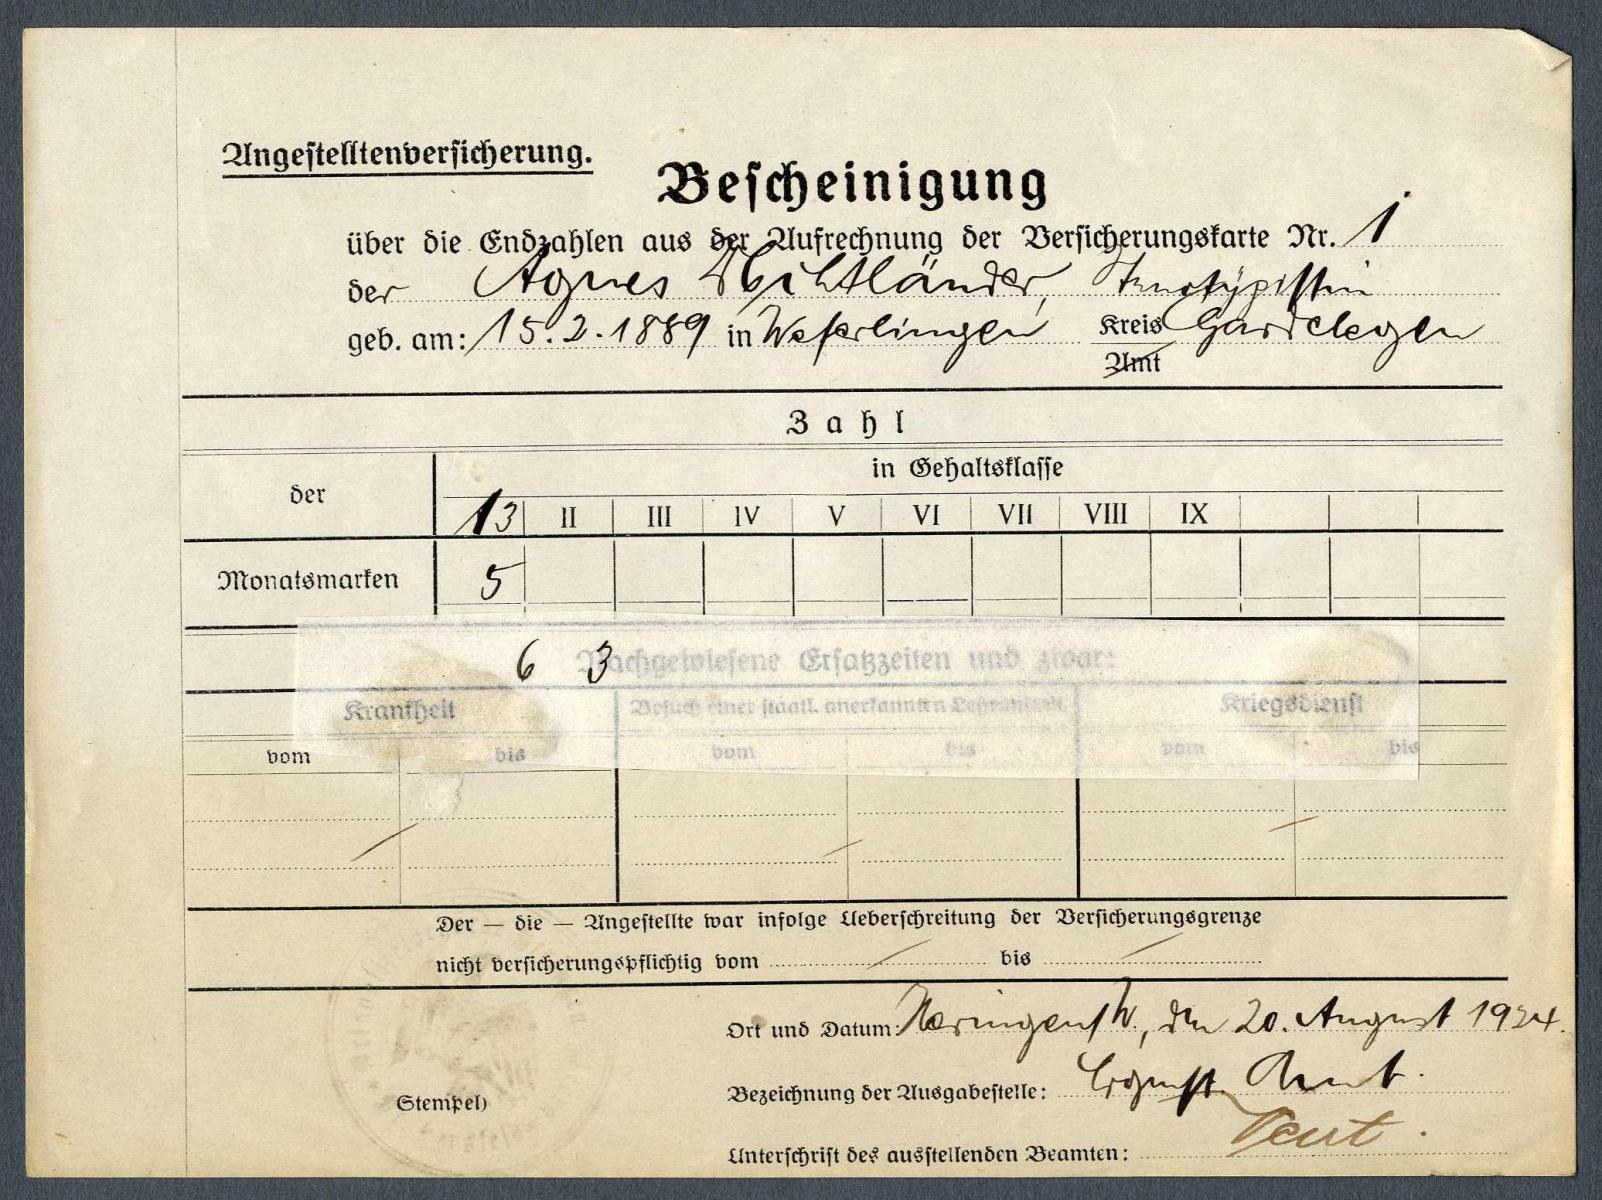 Angestelltenversicherung.
Bescheinigung
über die Endzahlen aus der Aufrechnung der Versicherungskarte Nr. 1
der Agnes
geb. am: 15.2.1889 in Weferlingen Kreis Gardelegen
Amt
Zahl
der
in Gehaltsklasse
13 II III IV V VI VII VIII IX
Monatsmarken 5
6 3 Nachgewiesene Ersatzzeiten und zwar:
Krankheit Besuch einer staatl. anerkannten Lehranstalt Kriegsdienst
vom bis vom bis vom bis
Der — die — Angestellte war infolge Ueberschreitung der Versicherungsgrenze
nicht versicherungspflichtig vom bis
Ort und Datum: den 20. August 1924.
Stempel)
Bezeichnung der Ausgabestelle:
Unterschrift des ausstellenden Beamten: